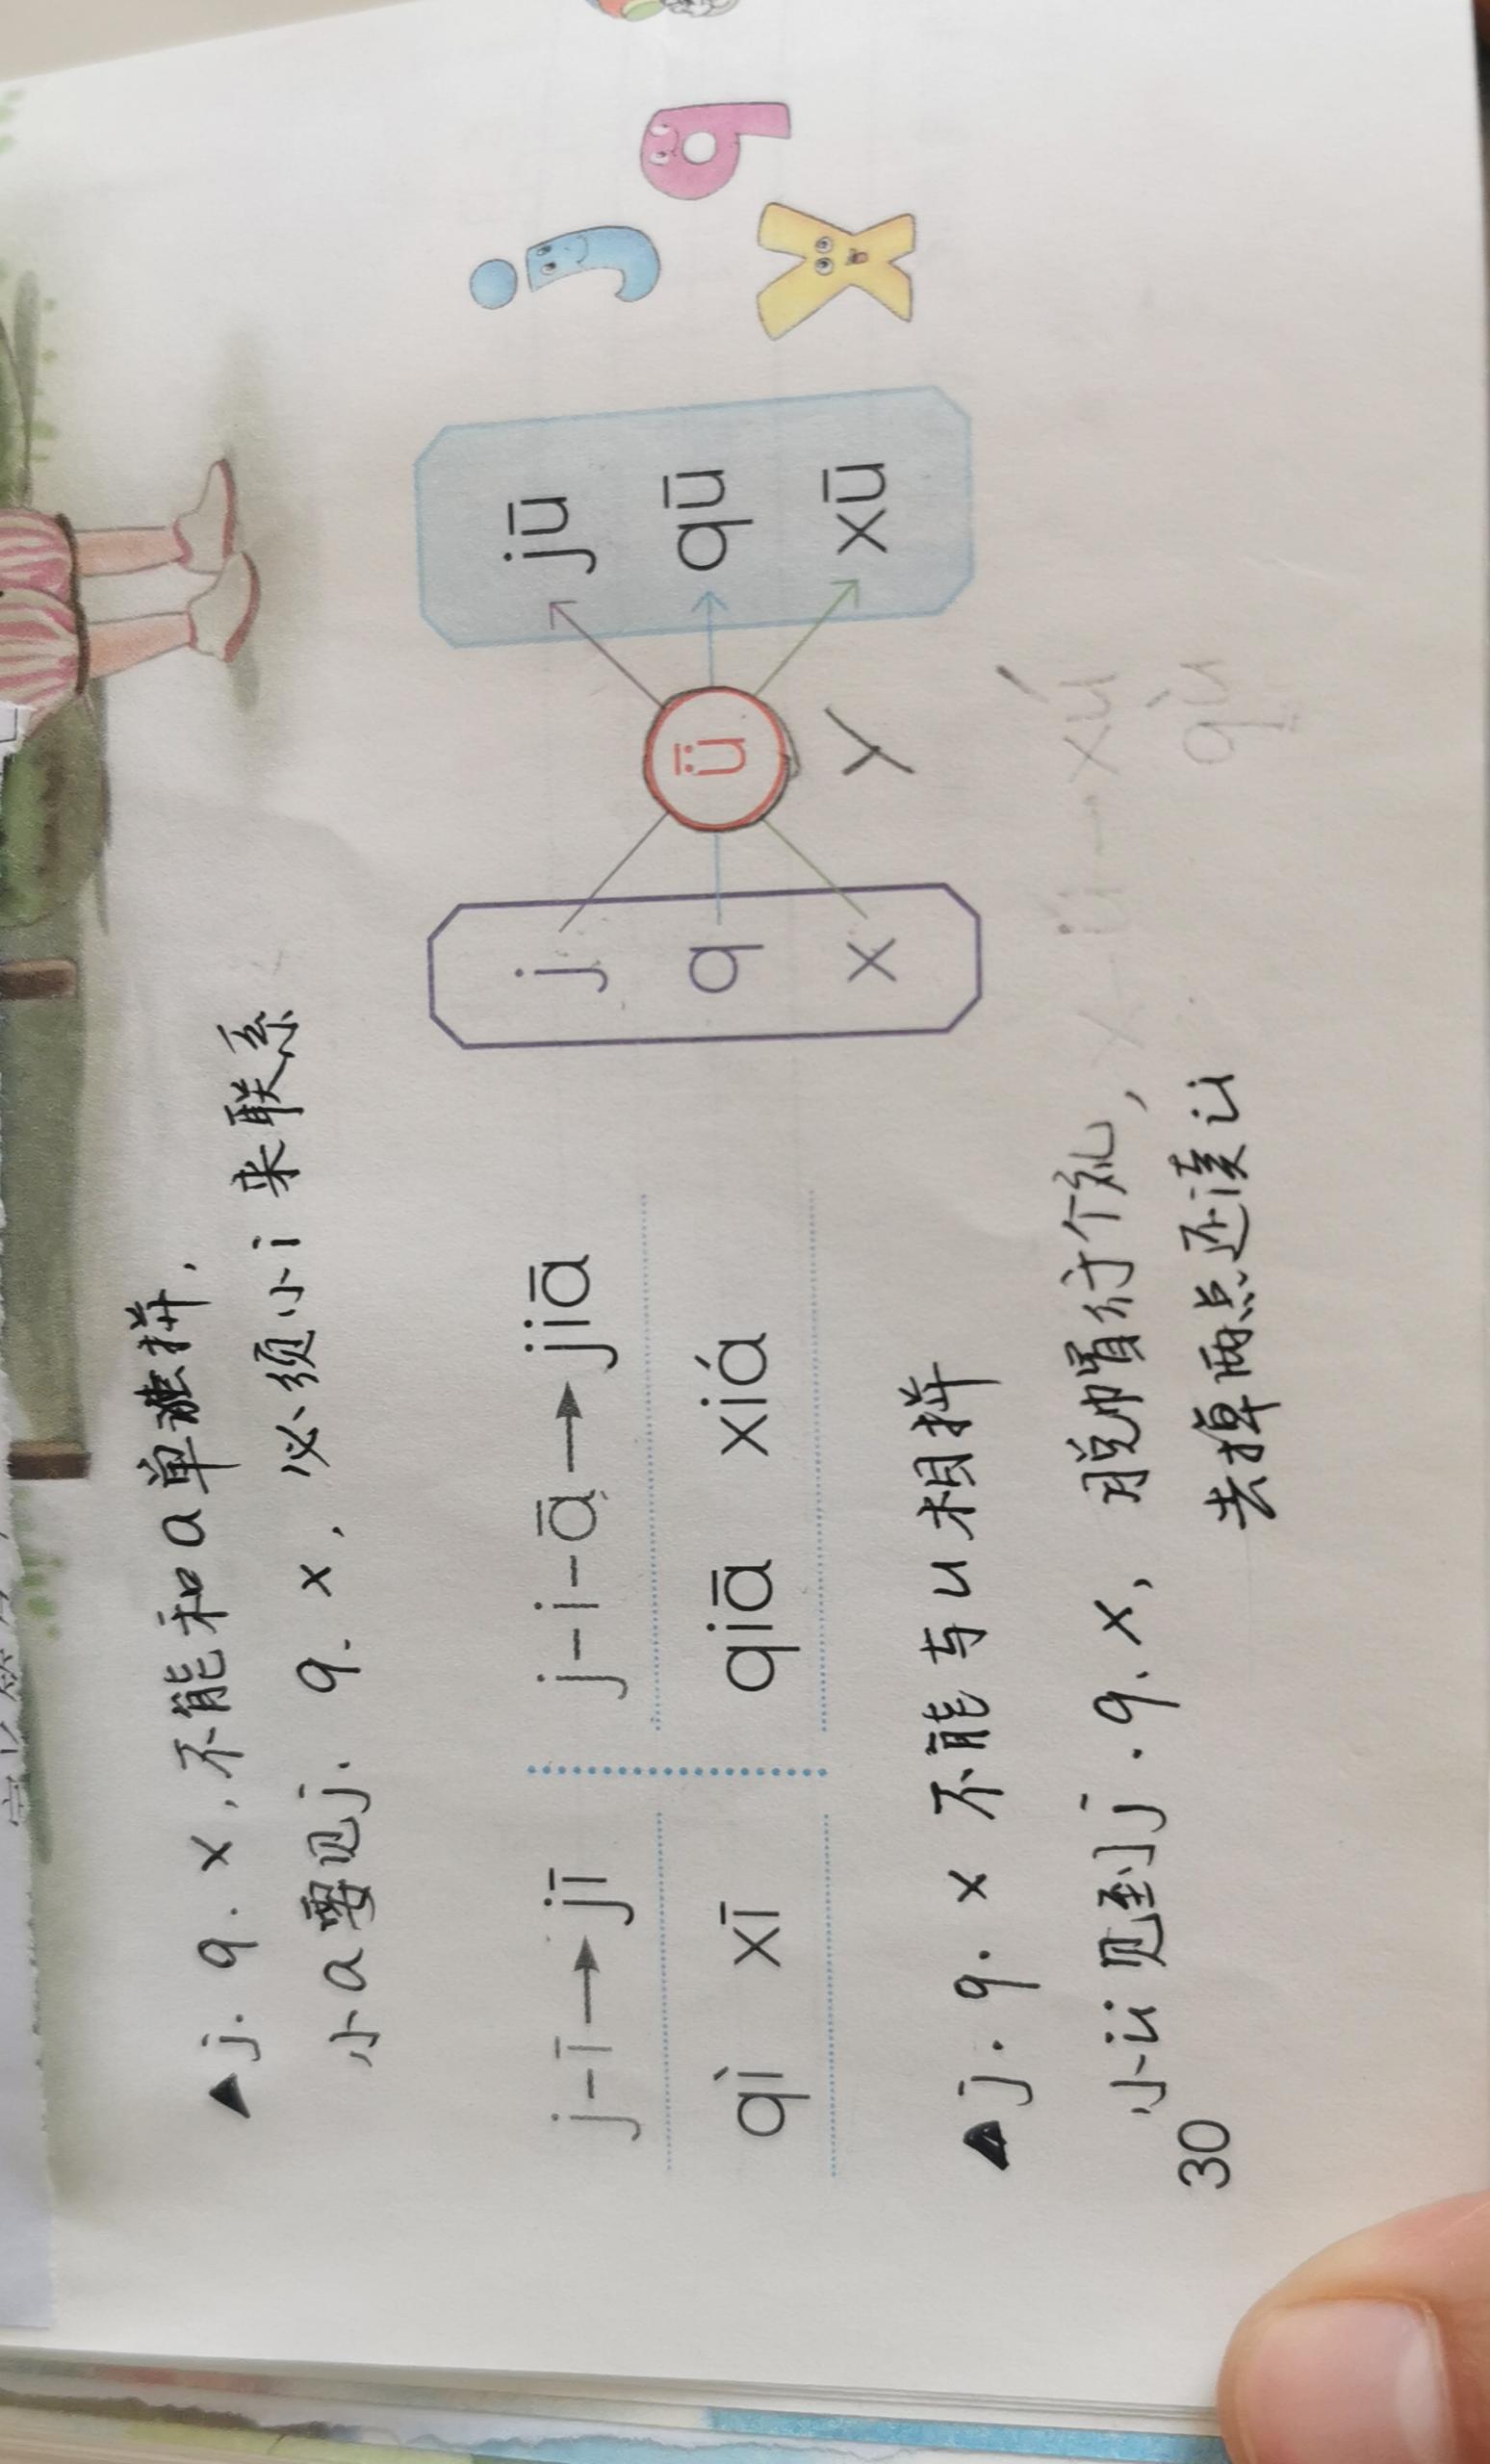 ▲j. q. x, 不能和a单独拼,
小a要见j. q. x, 必须小i来联系
j-ī→jī
j-i-ā→jiā
qì xī
qiā xiá
j
q
x
ǖ
y
jū
qū
xū
▲j. q. x 不能与u相拼
小ü见到j. q. x, 脱帽行个礼,
去掉两点还读ü
x-ü→xú
qù
30